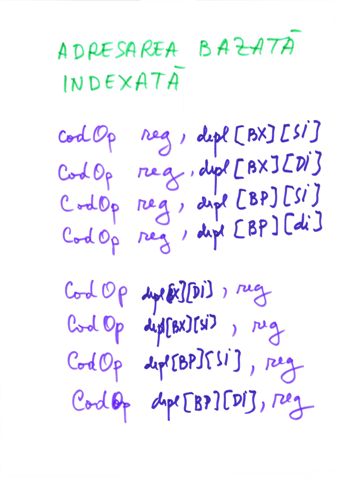 ADRESAREA BAZATĂ
INDEXATĂ
codOp reg, depl[BX][Si]
CodOp reg, depl[BX][Di]
CodOp reg, depl[BP][Si]
CodOp reg, depl[BP][di]
CodOp depl[BX][Di], reg
CodOp depl[BX][si], reg
CodOp depl[BP][Si], reg
CodOp depl[BP][Di], reg